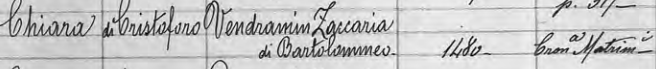 p. 31/-
Chiara di Cristoforo Vendramin Zaccaria
di Bartolammeo. 1480 Cron.ª Matrim.i